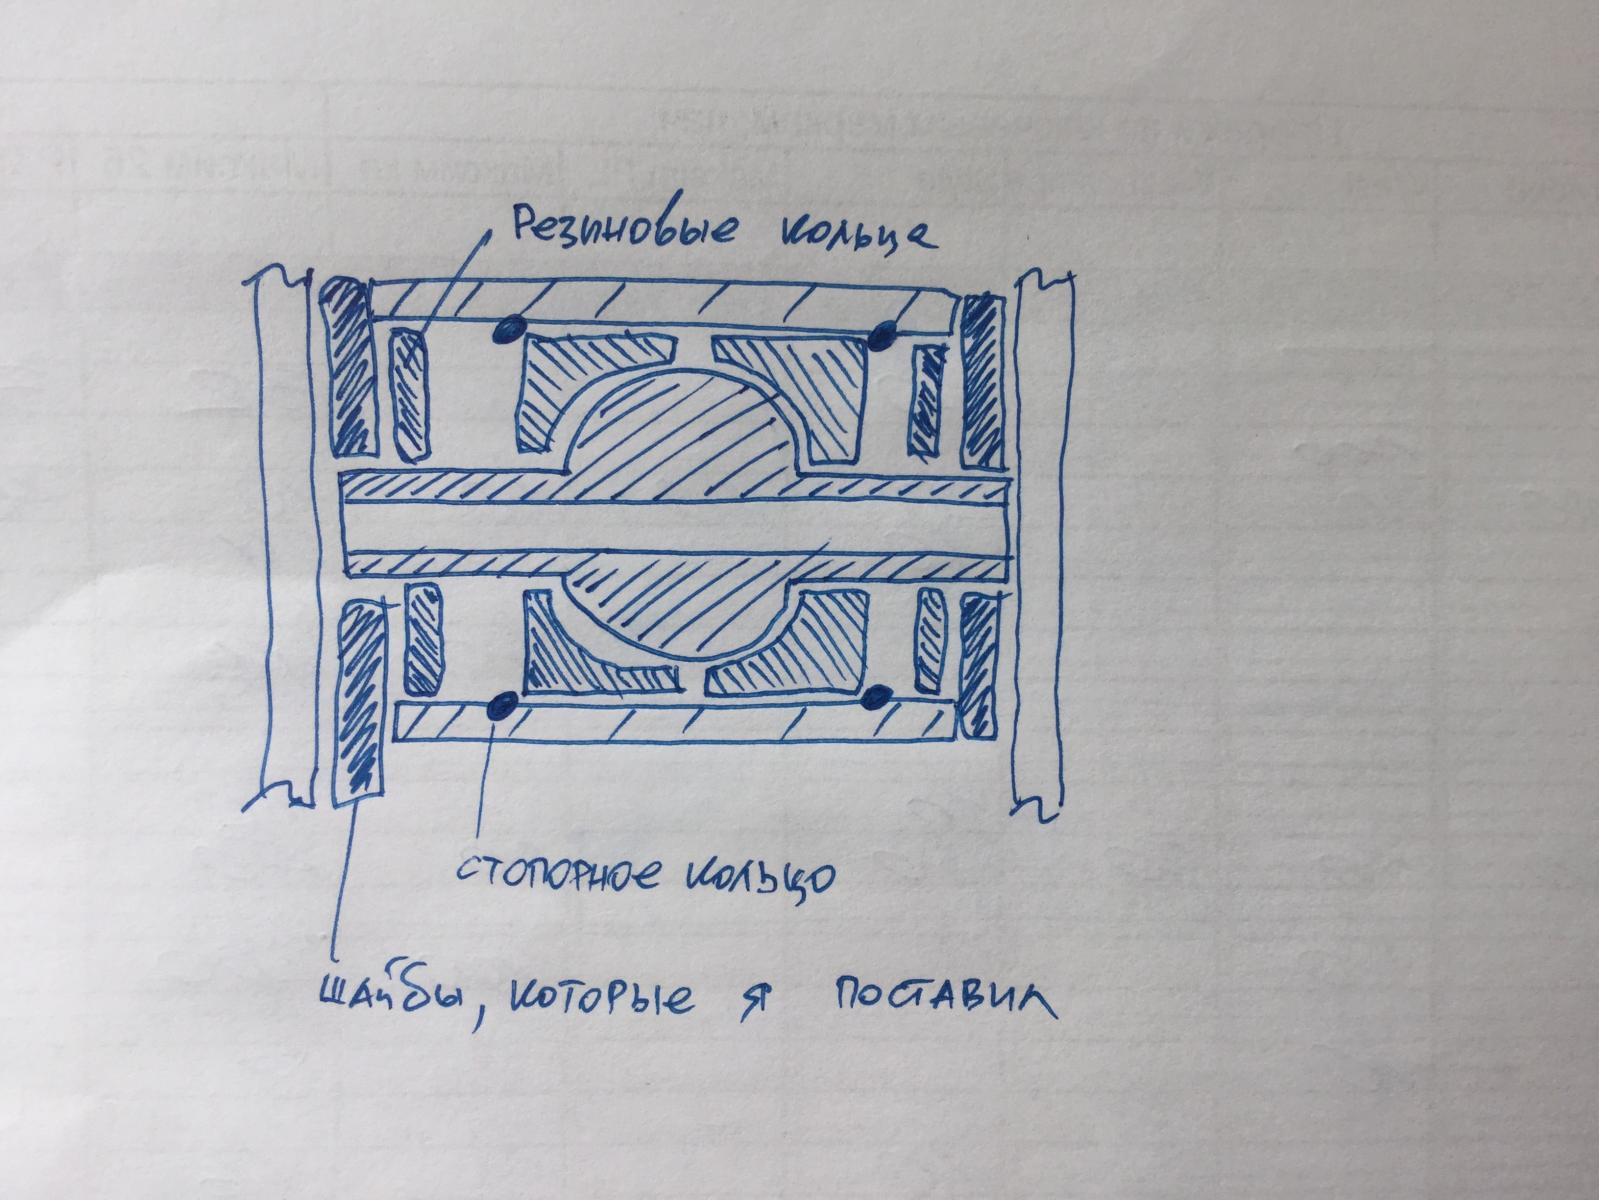 Резиновые кольца
стопорное кольцо
шайбы, которые я поставил